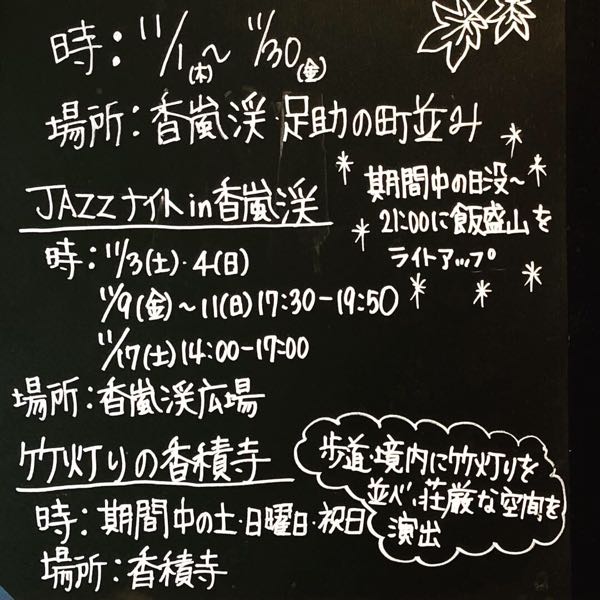 時：11/1(木)～11/30(金)
場所：香嵐渓・足助の町並み
期間中の日没～
21:00に飯盛山を
ライトアップ
JAZZナイトin香嵐渓
時：11/3(土)・4(日)
11/9(金)～11(日)17:30-19:50
11/17(土)14:00-17:00
場所：香嵐渓広場
竹灯りの香積寺
時：期間中の土・日曜日・祝日
場所：香積寺
歩道・境内に竹灯りを
並べ、荘厳な空間を
演出